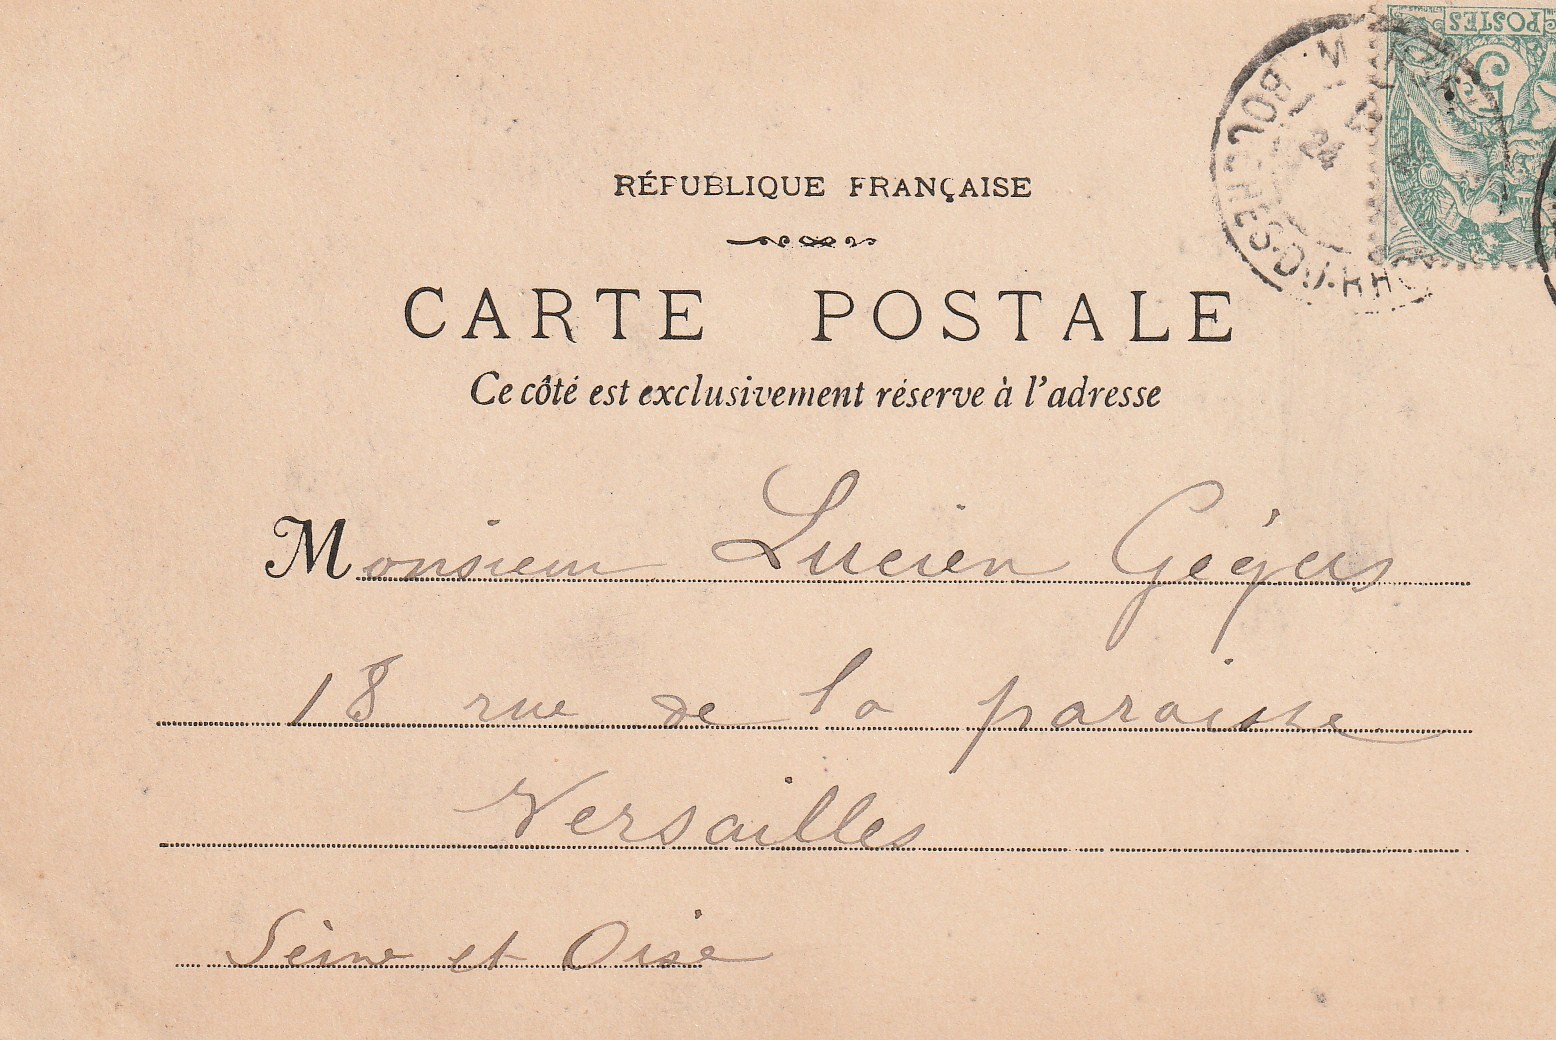 POSTES
5
BOUCHES-DU-RH
24
RÉPUBLIQUE FRANÇAISE
CARTE POSTALE
Ce côté est exclusivement réserve à l'adresse
Monsieur Lucien Gégers
18 rue de la paroisse
Versailles
Seine et Oise